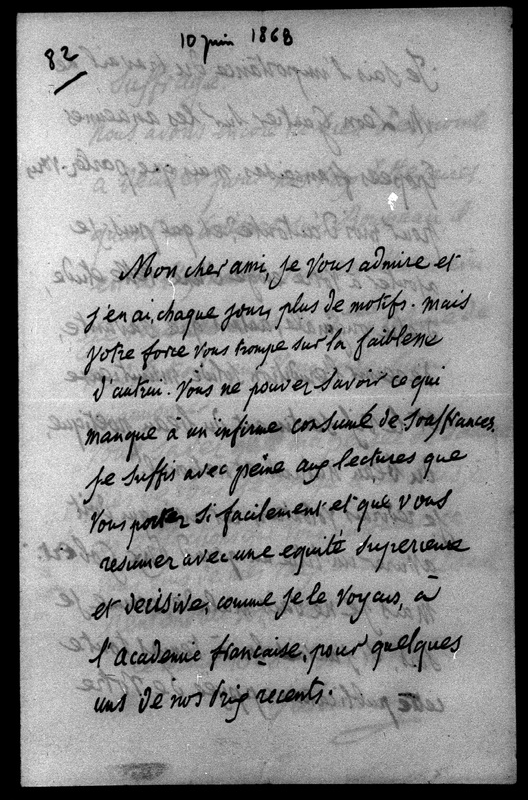 82
10 juin 1868
Mon cher ami, je vous admire et
j'en ai, chaque jour, plus de motifs. mais
votre force vous trompe sur la faiblesse
d'autrui. Vous ne pouvez savoir ce qui
manque à un infirme consumé de souffrances.
je suffis avec peine aux lectures que
vous portez si facilement et que vous
resumez avec une equité superieure
et decisive, comme je le voyais, à
l'academie française, pour quelques
uns de nos prix recents.